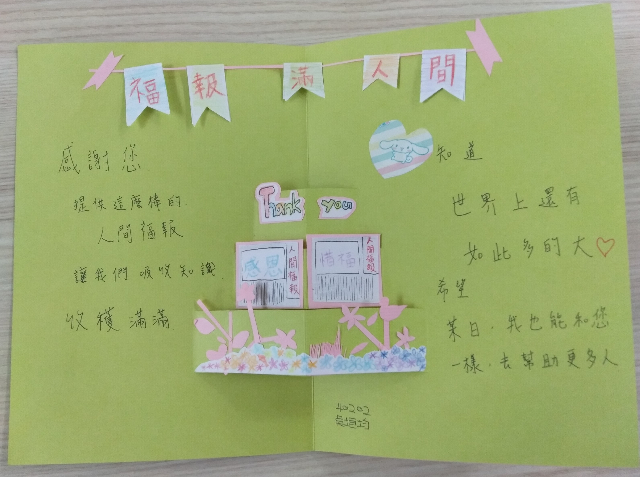 福報滿人間
感謝您
提供這麼棒的
人間福報
讓我們吸收知識
收穫滿滿
Thank you
感恩
人間福報
惜福
人間福報
知道
世界上還有
如此多的大♡
希望
某日,我也能和您
一樣,去幫助更多人
40202